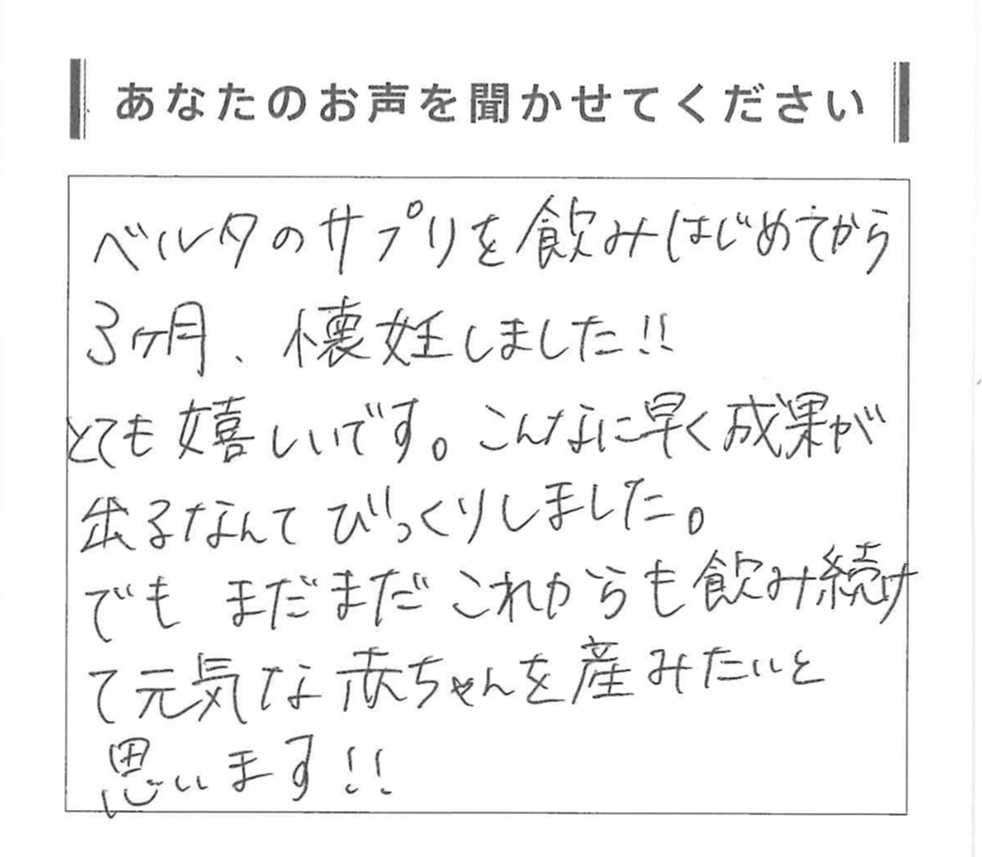 あなたのお声を聞かせてください
ベルタのサプリを飲みはじめてから
3ヶ月、懐妊しました!!
とても嬉しいです。こんなに早く成果が
出るなんてびっくりしました。
でも まだまだこれからも飲み続け
て元気な赤ちゃんを産みたいと
思います!!